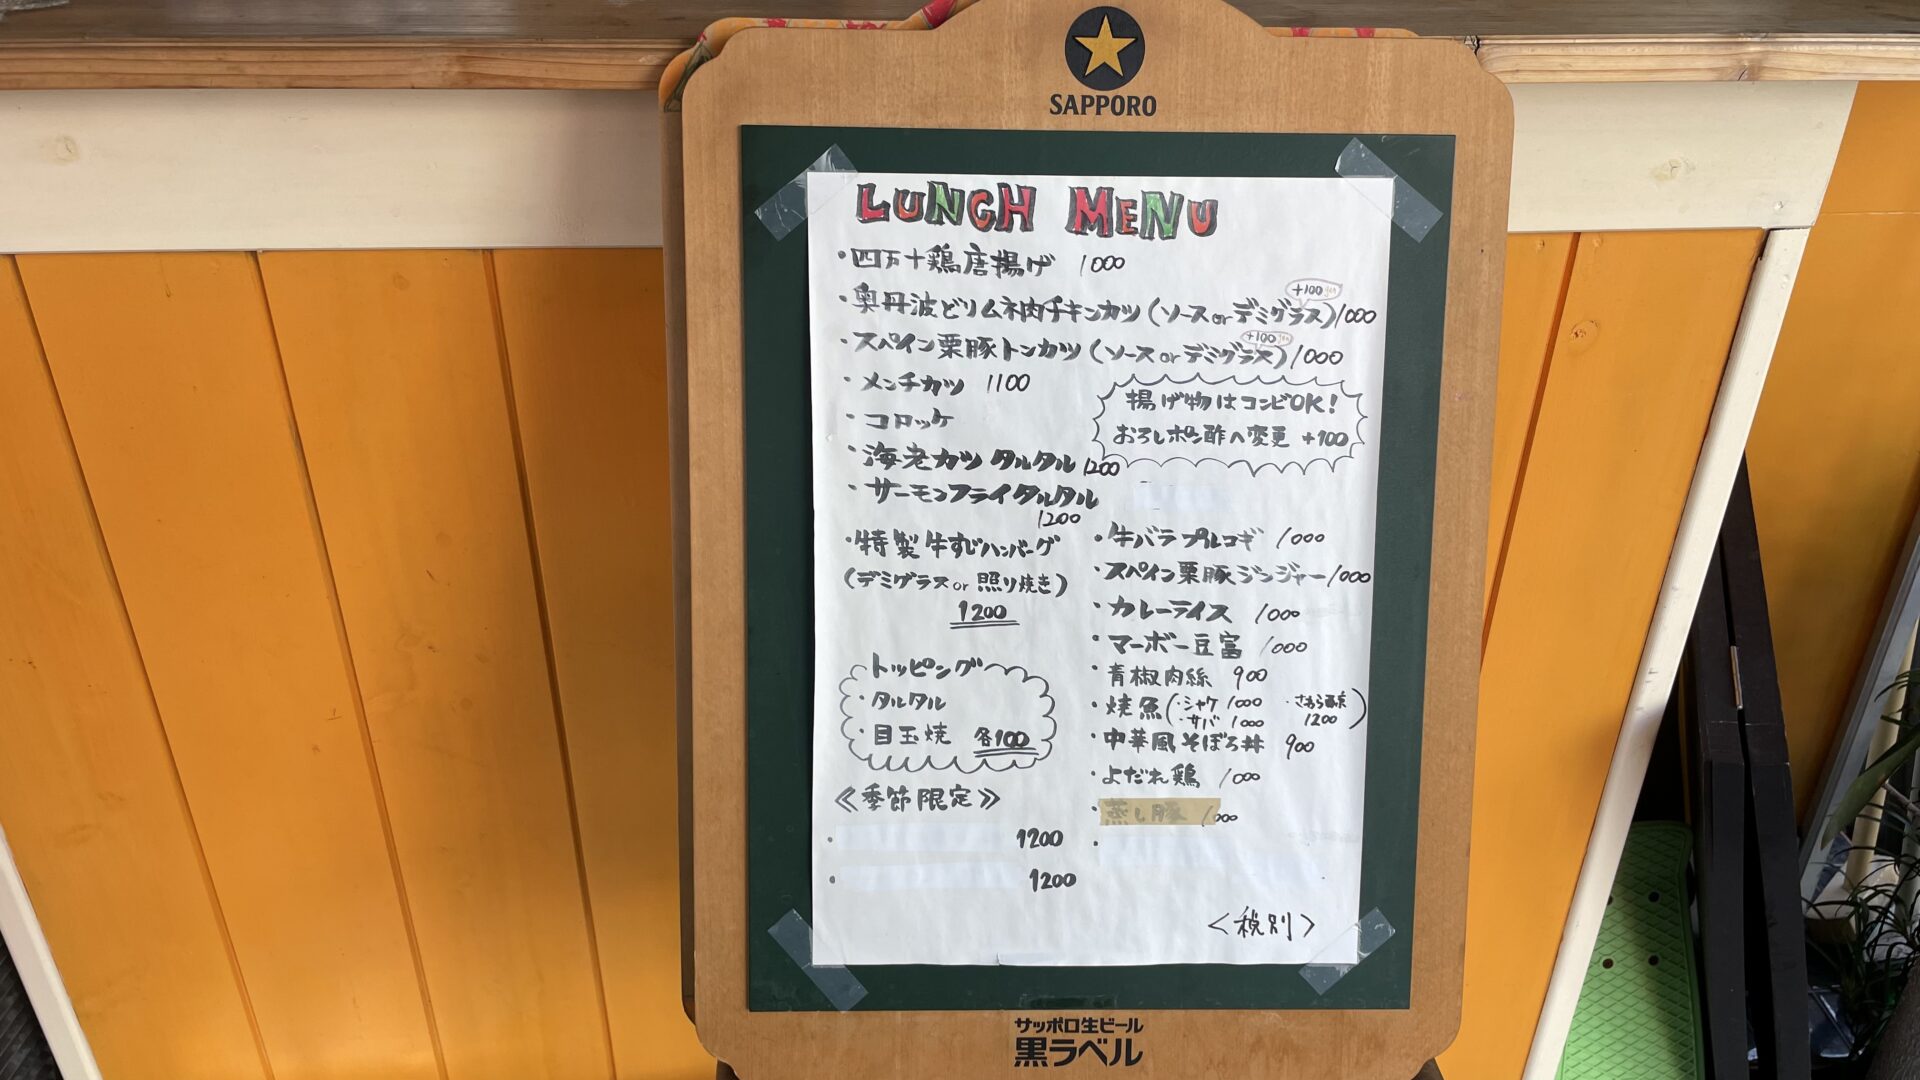 SAPPORO
LUNCH MENU
・四万十鶏唐揚げ 1000
+100yen
・奥丹波どりムネ肉チキンカツ(ソースorデミグラス)1000
+100yen
・スペイン栗豚トンカツ(ソースorデミグラス)1000
・メンチカツ 1100
・コロッケ
揚げ物はコンビOK!
おろしポン酢へ変更 +100
・海老カツ タルタル 1200
・サーモンフライタルタル
1200
・特製牛すじハンバーグ
(デミグラスor照り焼き)
1200
トッピング
・タルタル
・目玉焼 各100
≪季節限定≫
・ 1200
・ 1200
・牛バラプルコギ 1000
・スペイン栗豚ジンジャー1000
・カレーライス 1000
・マーボー豆富 1000
・青椒肉絲 900
・焼魚(・シャケ 1000 ・さわら西京 1200)
・サバ 1000
・中華風そぼろ丼 900
・よだれ鶏 1000
・蒸し豚 1000
・
<税別>
サッポロ生ビール
黒ラベル